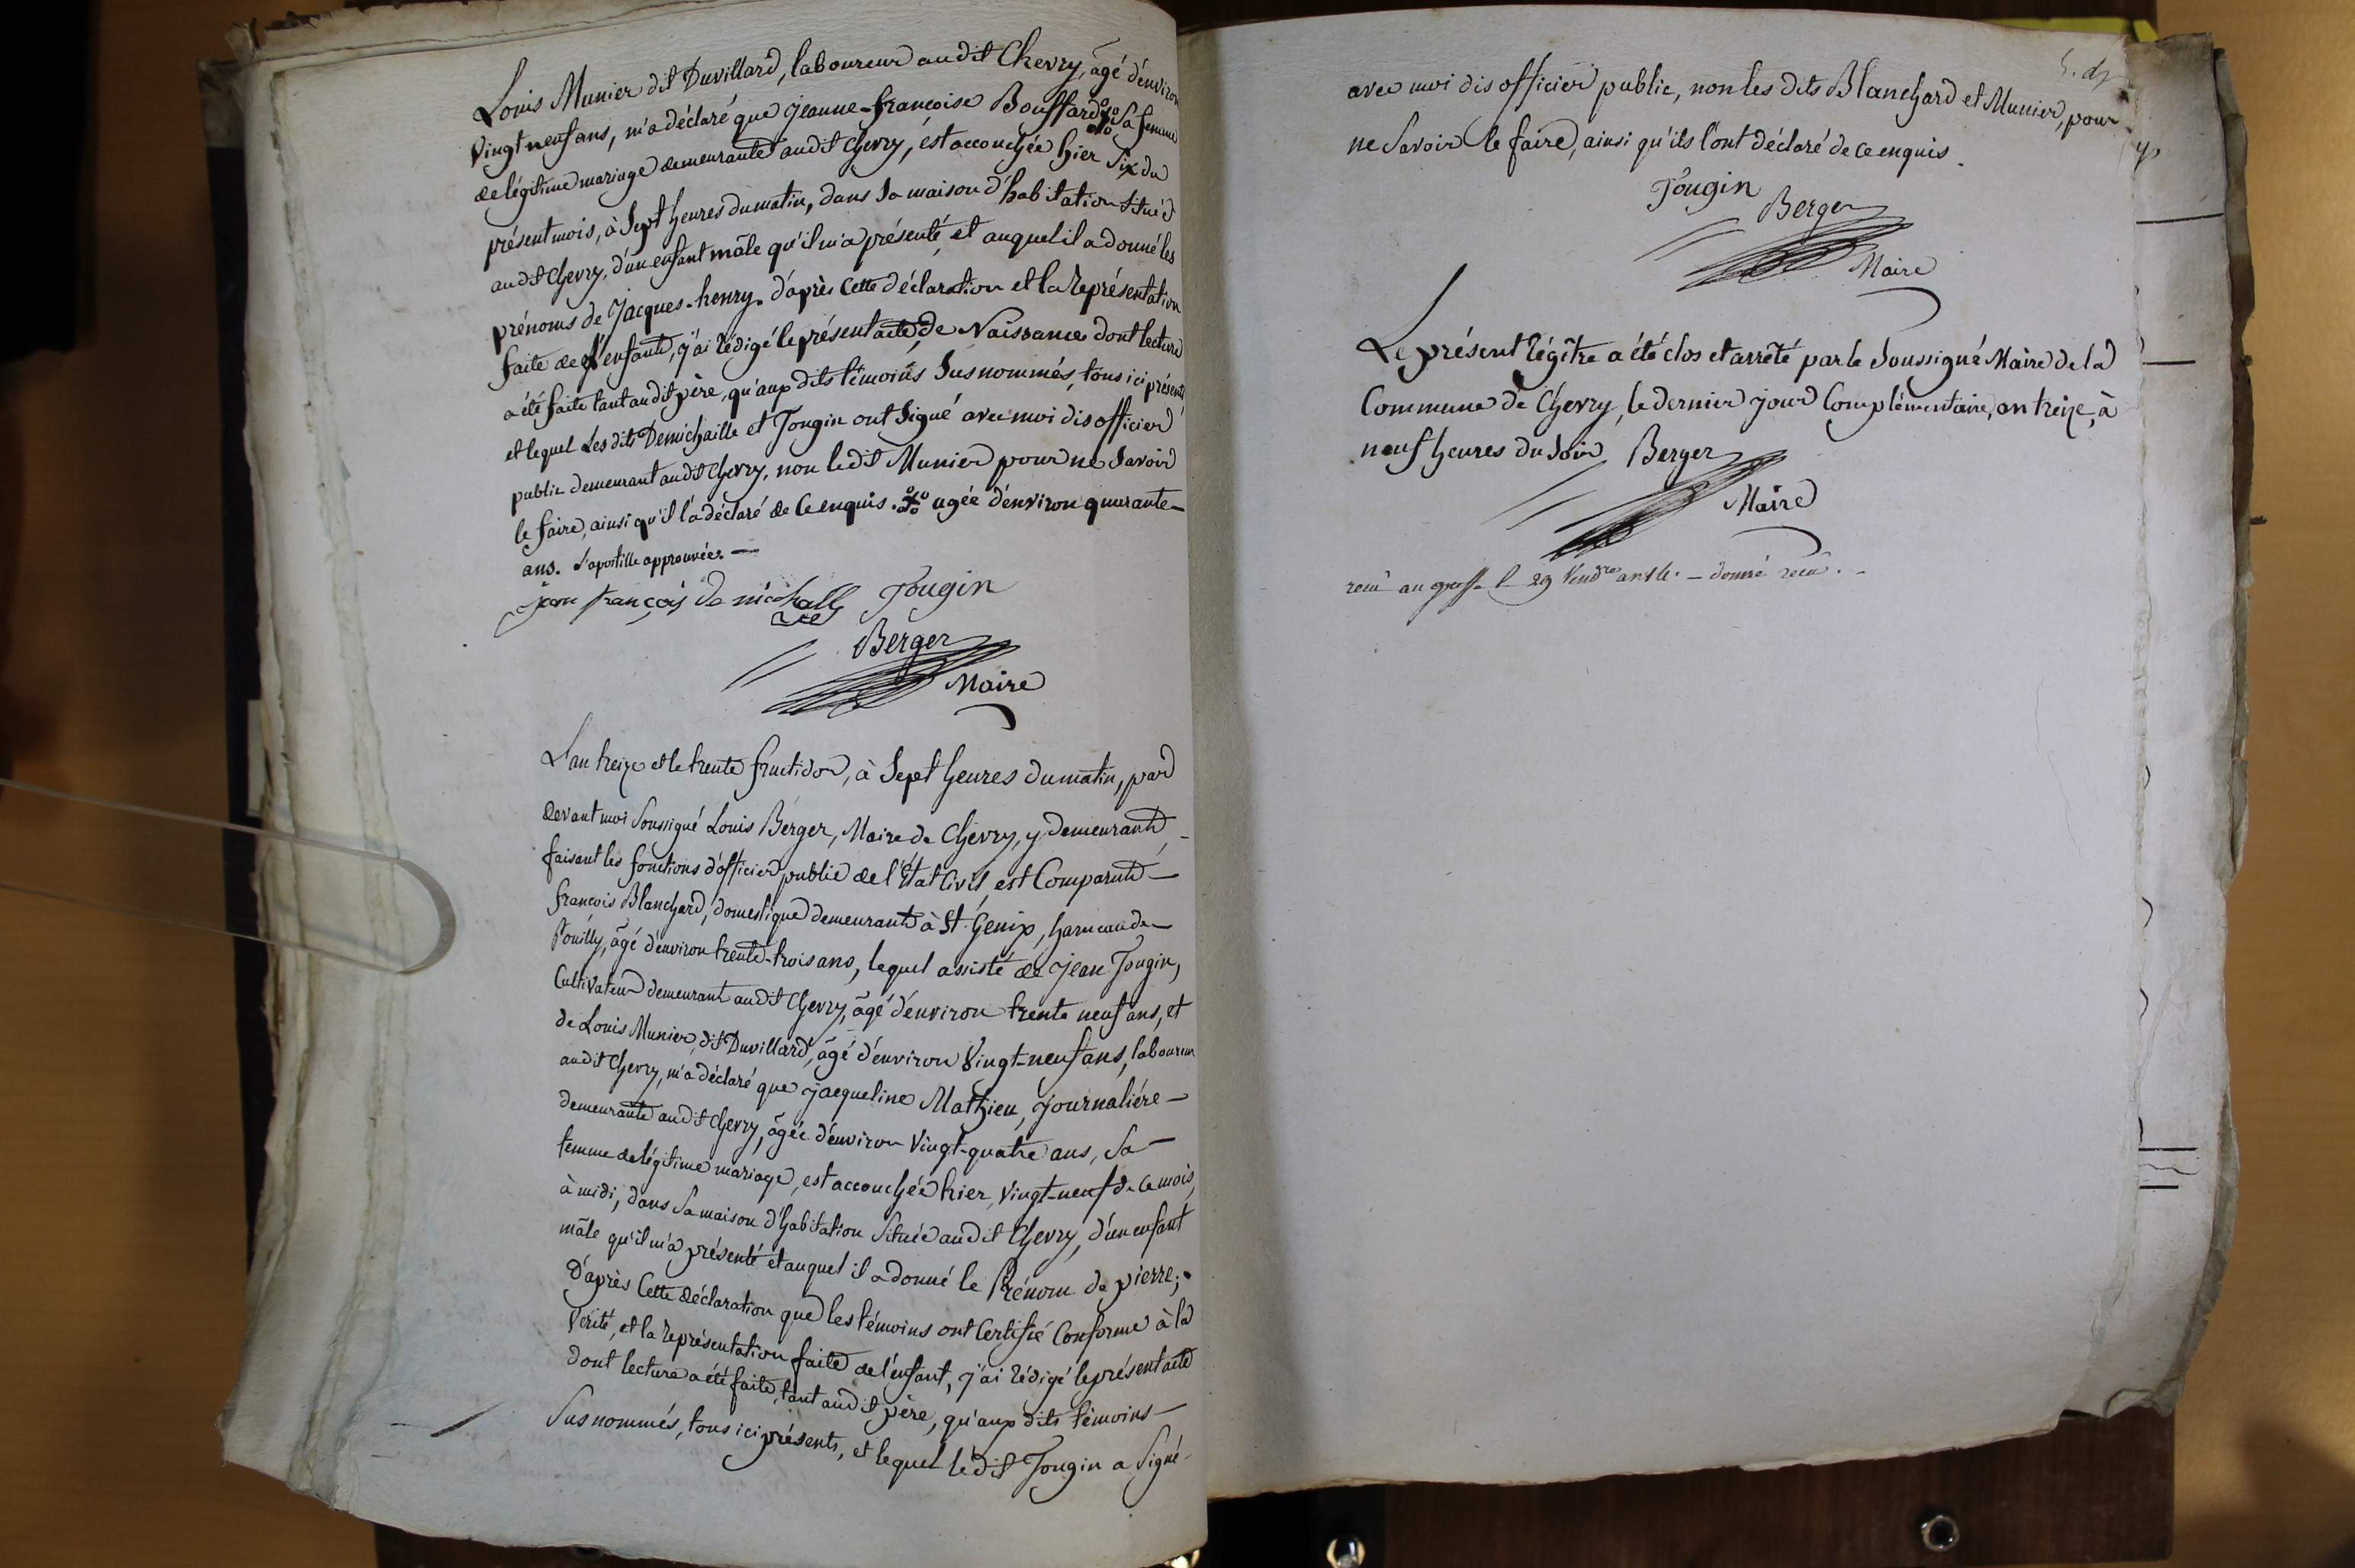 Louis Munier dit Duvillard, laboureur audit Chevry, âgé d'environ
vingt neuf ans, m'a déclaré que jeanne-francoise Bouffard sa femme
de légitime mariage demeurante audit Chevry, est accouchée hier six du
présent mois, à sept heures du matin, dans sa maison d'habitation située
audit Chevry, d'un enfant mâle qu'il m'a présenté, et auquel il a donné les
prénoms de Jacques-henry. d'après cette déclaration et la représentation
faite de l'enfant, j'ai rédigé le présent acte de Naissance dont lecture
a été faite tant audit père, qu'aux dits témoins susnommés, tous ici présents
et lequel les dits Demichaille et Tougin ont signé avec moi dis officier
public demeurant audit Chevry, non ledit Munier pour ne savoir
le faire, ainsi qu'il l'a déclaré de ce enquis. agée d'environ quarante-
ans. l'apostille approuvée. —
jean françois De michaille Tougin
Berger
Maire
L'an treize et le trente fructidor, à sept heures du matin, par
devant moi soussigné Louis Berger, Maire de Chevry, y demeurant,
faisant les fonctions d'officier public de l'État Civil, est Comparut
francois Blanchard, domestique demeurant à St. Genix, hameau de
Pouilly, âgé d'environ trente-trois ans, lequel assisté de jean Tougin,
Cultivateur demeurant audit Chevry, âgé d'environ trente neuf ans, et
de Louis Munier, dit Duvillard, âgé d'environ vingt-neuf ans, laboureur
audit Chevry, m'a déclaré que jacqueline Mathieu, journalière
demeurante audit Chevry, âgée d'environ vingt-quatre ans, sa
femme de légitime mariage, est accouchée hier, vingt-neuf de ce mois,
à midi, dans sa maison d'habitation située audit Chevry, d'un enfant
mâle qu'il m'a présenté et auquel il a donné le Prénom de pierre;
D'après cette déclaration que les témoins ont certifié conforme à la
vérité, et la représentation faite de l'enfant, j'ai rédigé le présent acte
dont lecture a été faite, tant audit père, qu'aux dits témoins
susnommés, tous ici présents, et lequel le dit Tougin a signé
avec moi dis officier public, non les dits Blanchard et Munier, pour
ne savoir le faire, ainsi qu'ils l'ont déclaré de ce enquis.
Tougin
Berger
Maire
Le présent régître a été clos et arrêté par le soussigné Maire de la
Commune de Chevry, le dernier jour Complémentaire, an treize, à
neuf heures du soir Berger
Maire
remi au greffe le 29 Vend.re an 14. — donné recu.